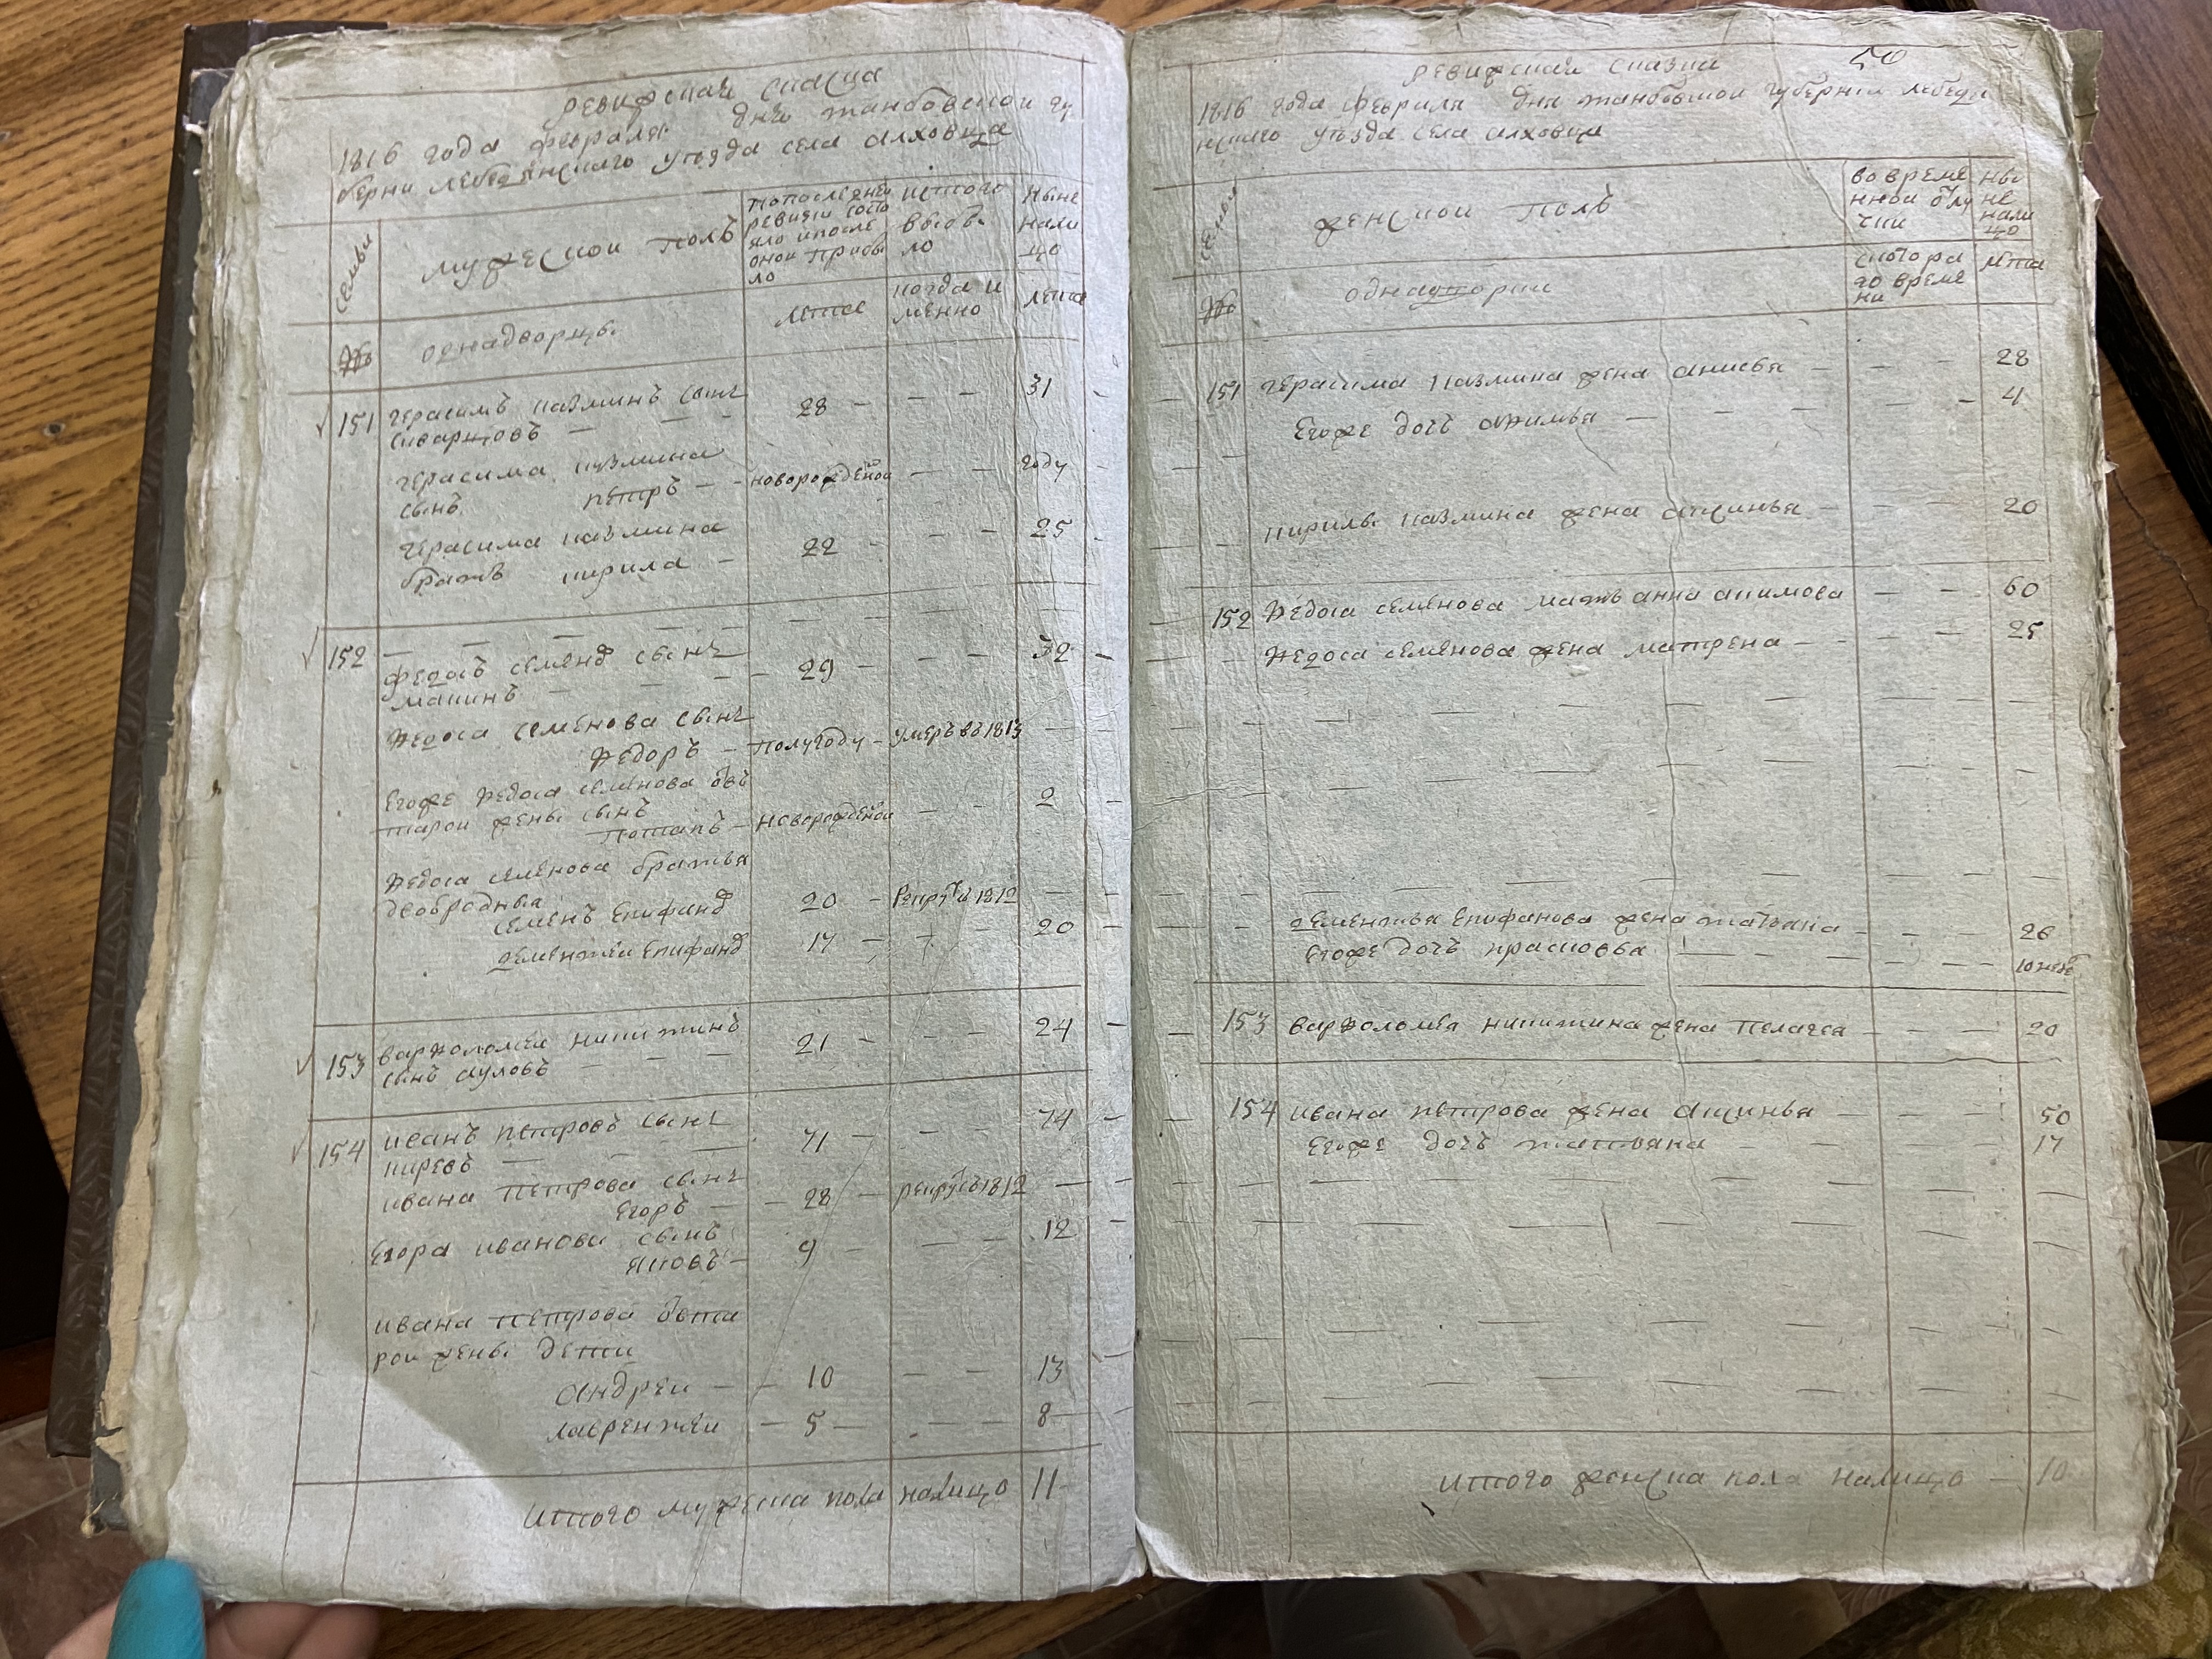 ревижская скаска
1816 года февраля дня танбовской гу
берни лебедянского уезда села алховца
семьи
мужеской полъ
попоследней ревизи состояло ипосле оной прибыло
истого выбыло
ныне налицо
№
однадворцы
лета
когда имено
лета
151 герасимъ казминъ сынъ
сиварцовъ — — — 28 — — — 31
герасима казмина
сынъ петръ — новорожденой — — году
герасима казмина
братъ кирила — 22 — — — 25
152 — — — — — —
федосъ семеновъ сынъ
макинъ — — — 29 — — — 32
Ѳедоса семенова сынъ
Ѳедоръ — полугоду — умеръ въ 1813 —
Егоже Ѳедоса семенова отъ вторай жены сынъ
потапъ — новорожденой — — 2
Ѳедоса семенова братья
двобродныя
семенъ Епифановъ 20 — рекрутъ в 1812 —
дементеи Епифановъ 17 — — — 20
153 варѲоломеи никитинъ
сынъ ауловъ — — — 21 — — — 24
154 иванъ петровъ сынъ
киревъ — — — 71 — — — 74
ивана петрова сынъ
Егоръ — 28 — рекрутъ в 1812 —
Егора иванова сынъ
яковъ — 9 — — — 12
ивана петрова отвта
рои жены дети
андреи — 10 — — 13
лаврентеи — 5 — — 8
итого мужеска пола налицо 11
50
ревижская сказка
1816 года февраля дня танбовской губерни лебедя
нского уезда села алховца
семьи
женской полъ
вовремен
ной отлу
чки
ны
не
нали
цо
№
однадворки
скотора
го време
ни
лета
151 герасима казмина жена анисья — — — 28
Егоже дочь акилина — — — 4
кирилы казмина жена аксинья — — — 20
152 Ѳедоса семенова мать анна акимова — — 60
Ѳедоса семенова жена матрена — — — 25
дементья Епифанова жена татьяна — — — 26
Егоже дочь прасковья — — — 10 неде
153 варѲоломея никитина жена пелагея — — — 20
154 ивана петрова жена аксинья — — — 50
Егоже дочь татьяна — — — 17
итого женска пола налицо — 10